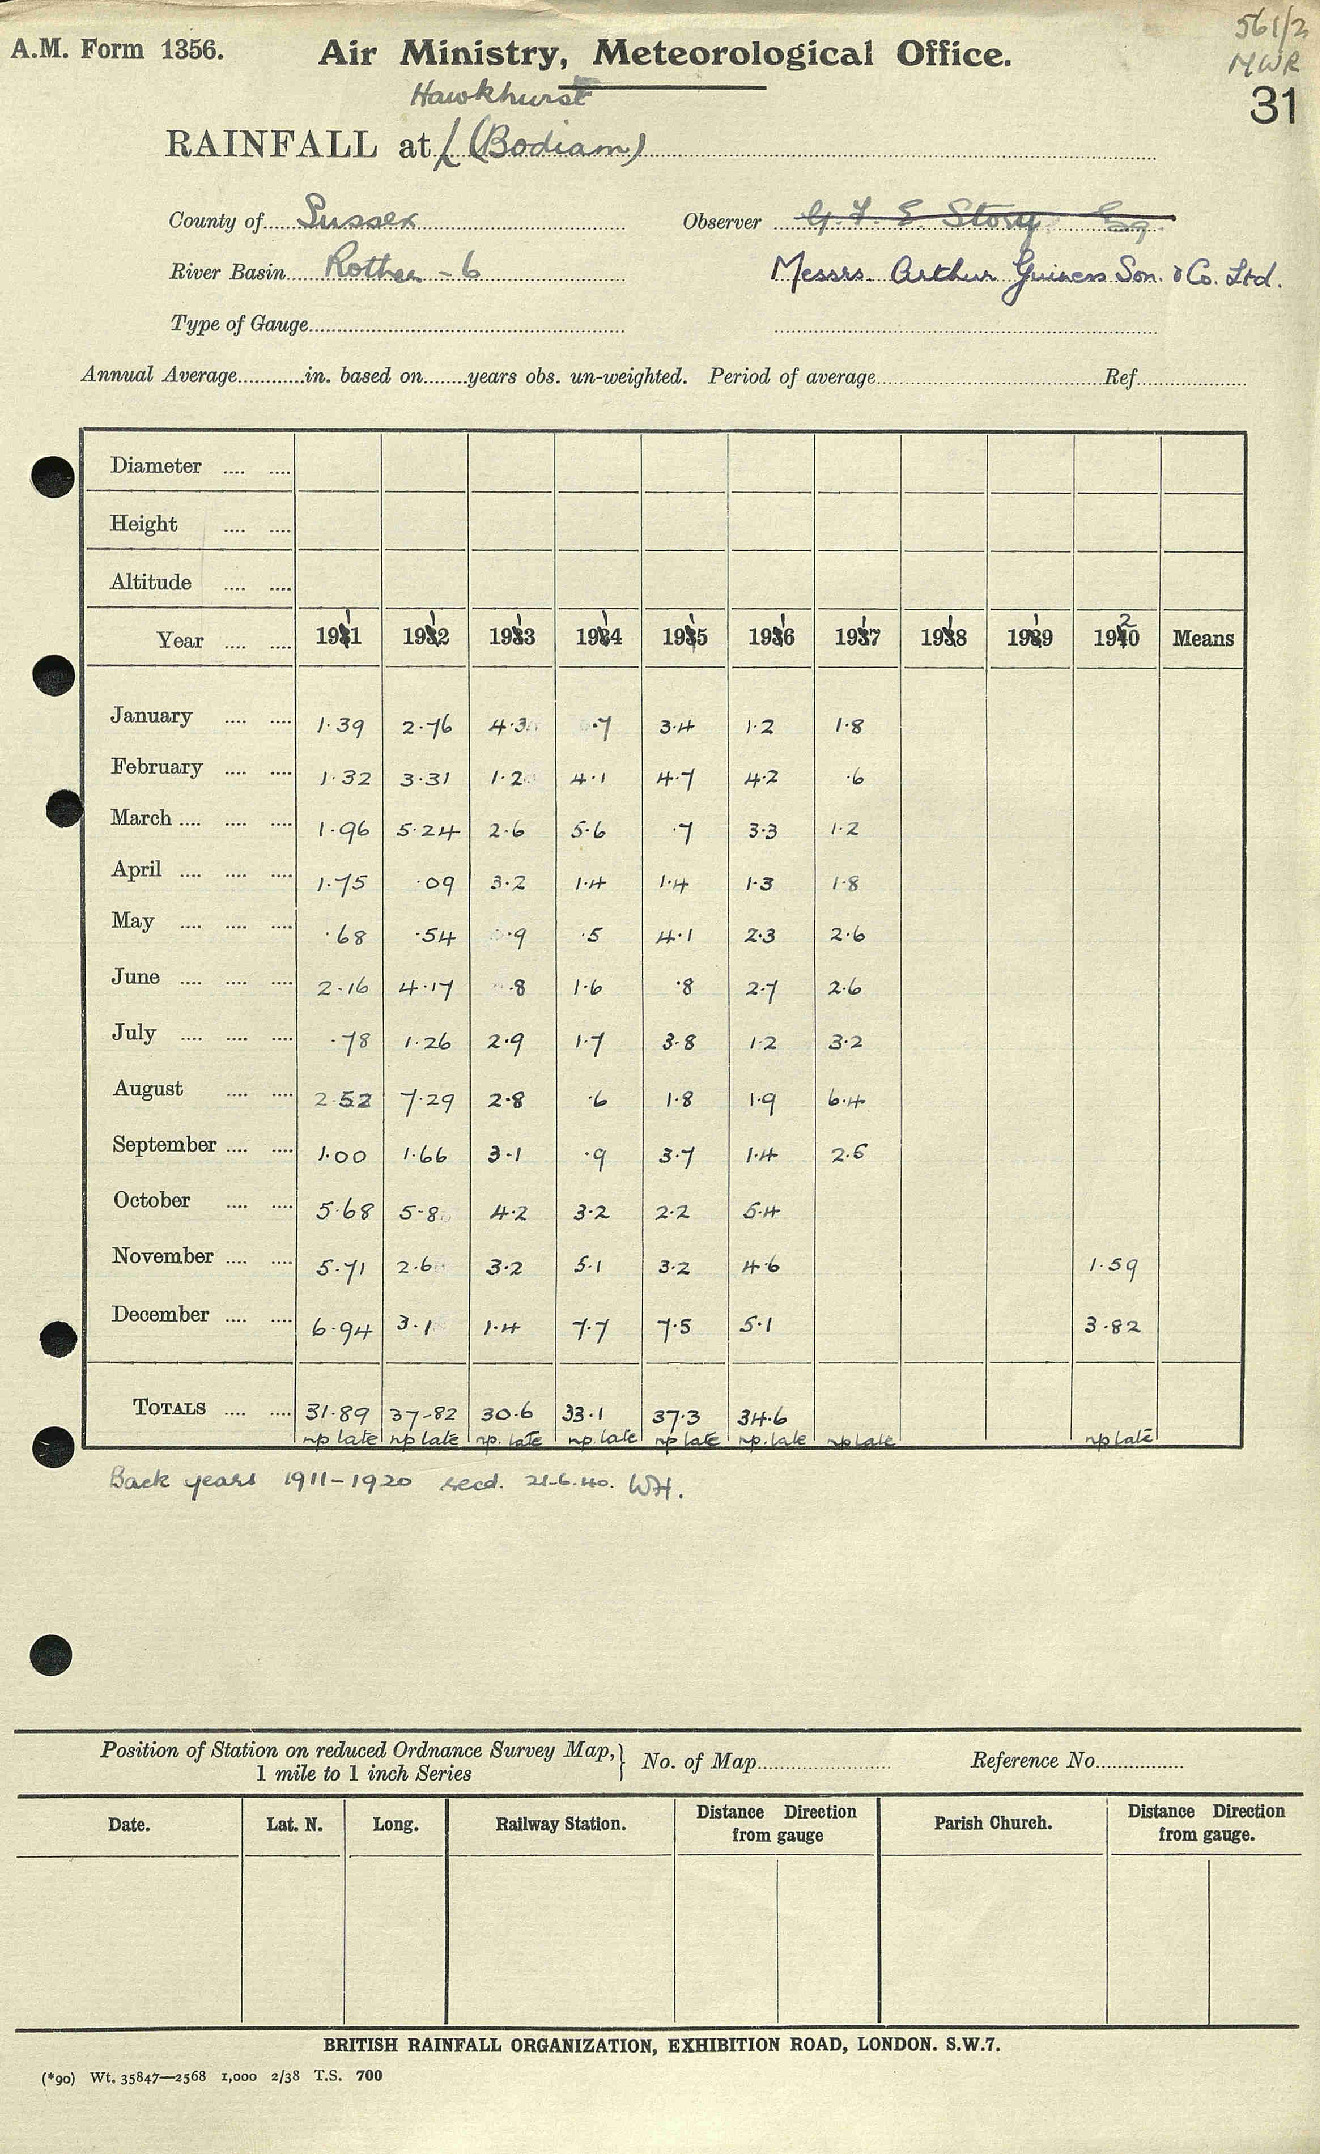 A.M. Form 1356.
Air Ministry, Meteorological Office.
561/2
MWR
31
Hawkhurst
RAINFALL at (Bodiam)
County of Sussex
Observer G. F. E. Story Esq
River Basin Rother - 6
Messrs. Arthur Guiness Son. & Co. Ltd.
Type of Gauge
Annual Average in. based on years obs. un-weighted. Period of average Ref.
Diameter
Height
Altitude
Year 1911 1912 1913 1914 1915 1916 1917 1918 1919 1920 Means
January 1.39 2.76 4.3 .7 3.4 1.2 1.8
February 1.32 3.31 1.2 4.1 4.7 4.2 .6
March 1.96 5.24 2.6 5.6 .7 3.3 1.2
April 1.75 .09 3.2 1.4 1.4 1.3 1.8
May .68 .54 .9 .5 4.1 2.3 2.6
June 2.16 4.17 .8 1.6 .8 2.7 2.6
July .78 1.26 2.9 1.7 3.8 1.2 3.2
August 2.52 7.29 2.8 .6 1.8 1.9 6.4
September 1.00 1.66 3.1 .9 3.7 1.4 2.5
October 5.68 5.8 4.2 3.2 2.2 5.4
November 5.71 2.6 3.2 5.1 3.2 4.6 1.59
December 6.94 3.1 1.4 7.7 7.5 5.1 3.82
TOTALS 31.89 37.82 30.6 33.1 37.3 34.6
np late np late np. late np. late np late np. late np late np late
Back years 1911-1920 recd. 21.6.40. WH.
Position of Station on reduced Ordnance Survey Map, } No. of Map Reference No.
1 mile to 1 inch Series
Date. Lat. N. Long. Railway Station. Distance Direction from gauge Parish Church. Distance Direction from gauge.
BRITISH RAINFALL ORGANIZATION, EXHIBITION ROAD, LONDON. S.W.7.
(*90) Wt. 35847—2568 1,000 2/38 T.S. 700